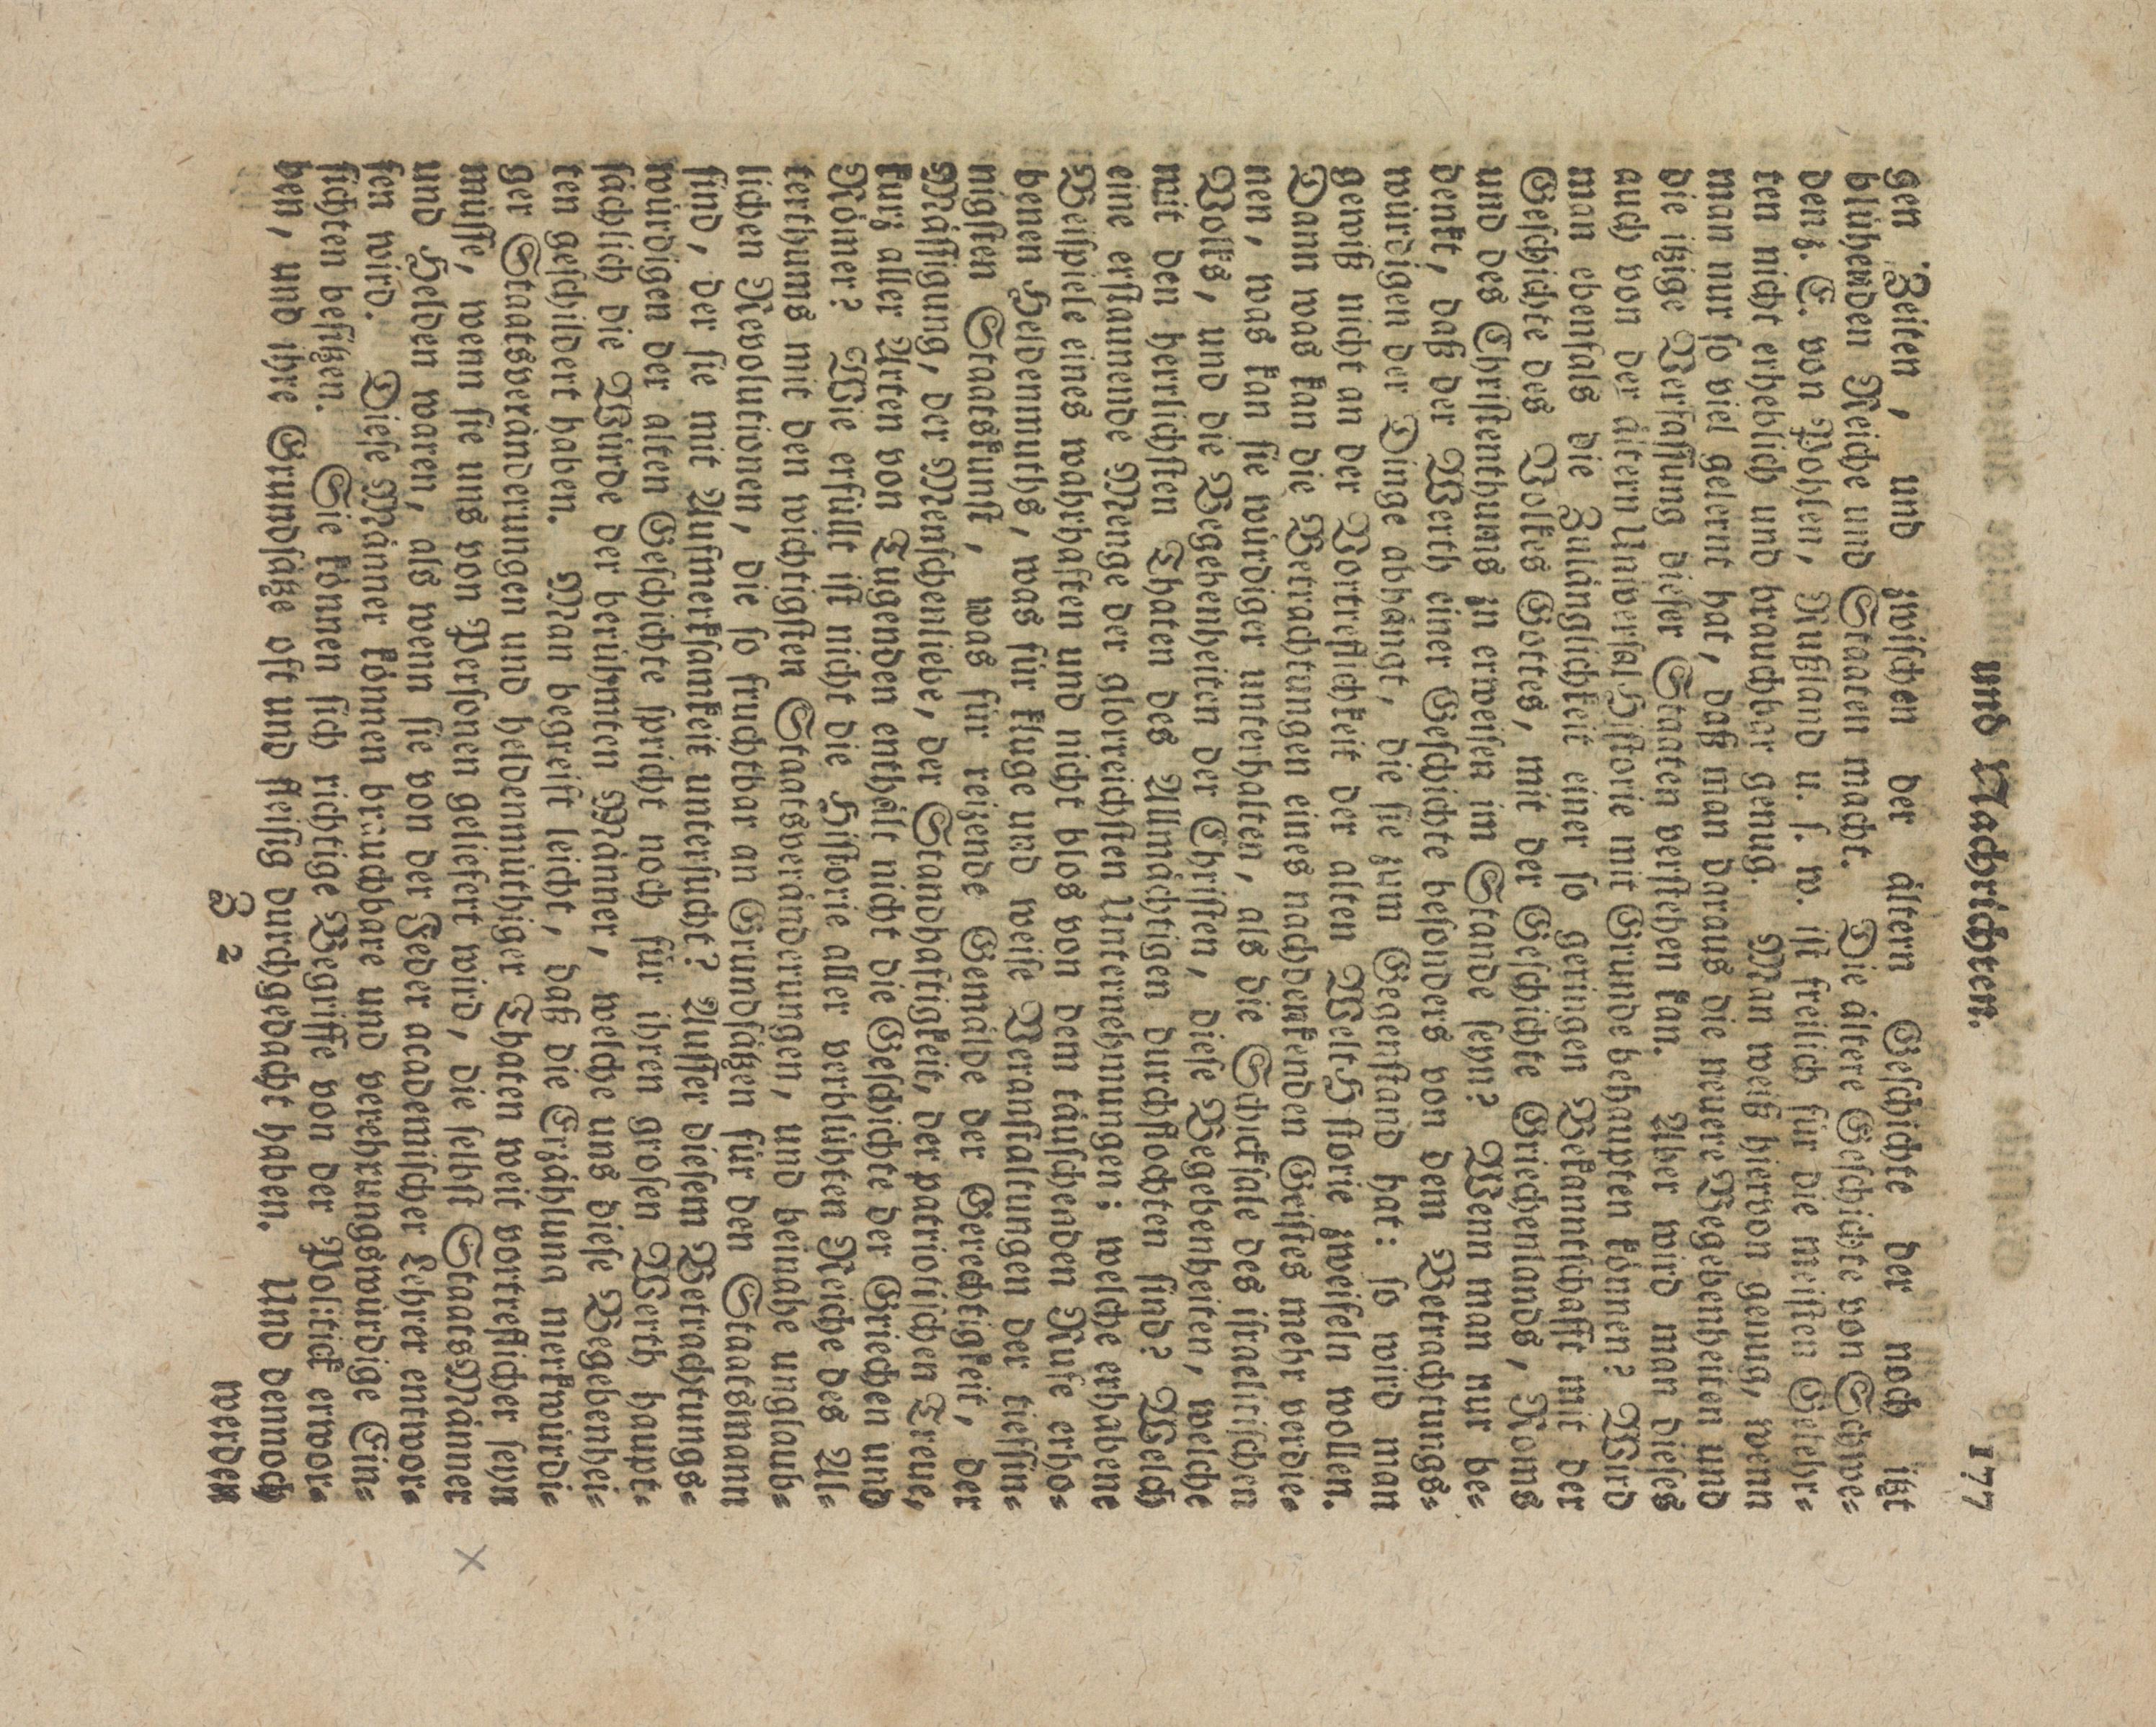 und Nachrichten. 177
gen Zeiten, und zwischen der ältern Geschichte der noch itzt
blühenden Reiche und Staaten macht. Die ältere Geschichte von Schwe-
den z. E. von Pohlen, Rußland u. s. w. ist freilich für die meisten Gelehr-
ten nicht erheblich und brauchbar genug. Man weiß hiervon genug, wenn
man nur so viel gelernt hat, daß man daraus die neuere Begebenheiten und
die itzige Verfassung dieser Staaten verstehen kan. Aber wird man dieses
auch von der ältern Universal Historie mit Grunde behaupten können? Wird
man ebenfals die Zulänglichkeit einer so geringen Bekanntschafft mit der
Geschichte des Volkes Gottes, mit der Geschichte Griechenlands, Roms
und des Christenthums zu erweisen im Stande seyn? Wenn man nur be-
denkt, daß der Werth einer Geschichte besonders von dem Betrachtungs-
würdigen der Dinge abhängt, die sie zum Gegenstand hat: so wird man
gewiß nicht an der Vortreflichkeit der alten Welt Historie zweifeln wollen.
Dann was kan die Betrachtungen eines nachdenkenden Geistes mehr verdie-
nen, was kan sie würdiger unterhalten, als die Schicksale des israelitischen
Volks, und die Begebenheiten der Christen, diese Begebenheiten, welche
mit den herrlichsten Thaten des Allmächtigen durchflochten sind? Welch
eine erstaunende Menge der glorreichsten Unternehmungen; welche erhabene
Beispiele eines wahrhaften und nicht blos von dem täuschenden Rufe erho-
benen Heldenmuths, was für kluge und weise Veranstaltungen der tiefsin-
nigsten Staatskunst, was für reizende Gemälde der Gerechtigkeit, der
Mässigung, der Menschenliebe, der Standhaftigkeit, der patriotischen Treue,
kurz aller Arten von Tugenden enthält nicht die Geschichte der Griechen und
Römer? Wie erfüllt ist nicht die Historie aller verblühten Reiche des Al-
terthums mit den wichtigsten Staatsveränderungen, und beinahe unglaub-
lichen Revolutionen, die so fruchtbar an Grundsätzen für den Staatsmann
sind, der sie mit Aufmerksamkeit untersucht? Ausser diesem Betrachtungs-
würdigen der alten Geschichte spricht noch für ihren grosen Werth haupt-
sächlich die Würde der berühmten Männer, welche uns diese Begebenhei-
ten geschildert haben. Man begreift leicht, daß die Erzählung merkwürdi-
ger Staatsveränderungen und heldenmüthiger Thaten weit vortreflicher seyn
müsse, wenn sie uns von Personen geliefert wird, die selbst Staats Männer
und Helden waren, als wenn sie von der Feder academischer Lehrer entwor-
fen wird. Diese Männer können brauchbare und verehrungswürdige Ein-
sichten besitzen. Sie können sich richtige Begriffe von der Politick erwor-
ben, und ihre Grundsätze oft und fleisig durchgedacht haben. Und dennoch
Z 2 werden